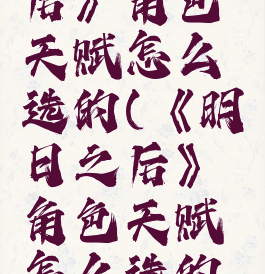 后》角色
天赋怎么
选的(《明
日之后》
角色天赋
怎么选的